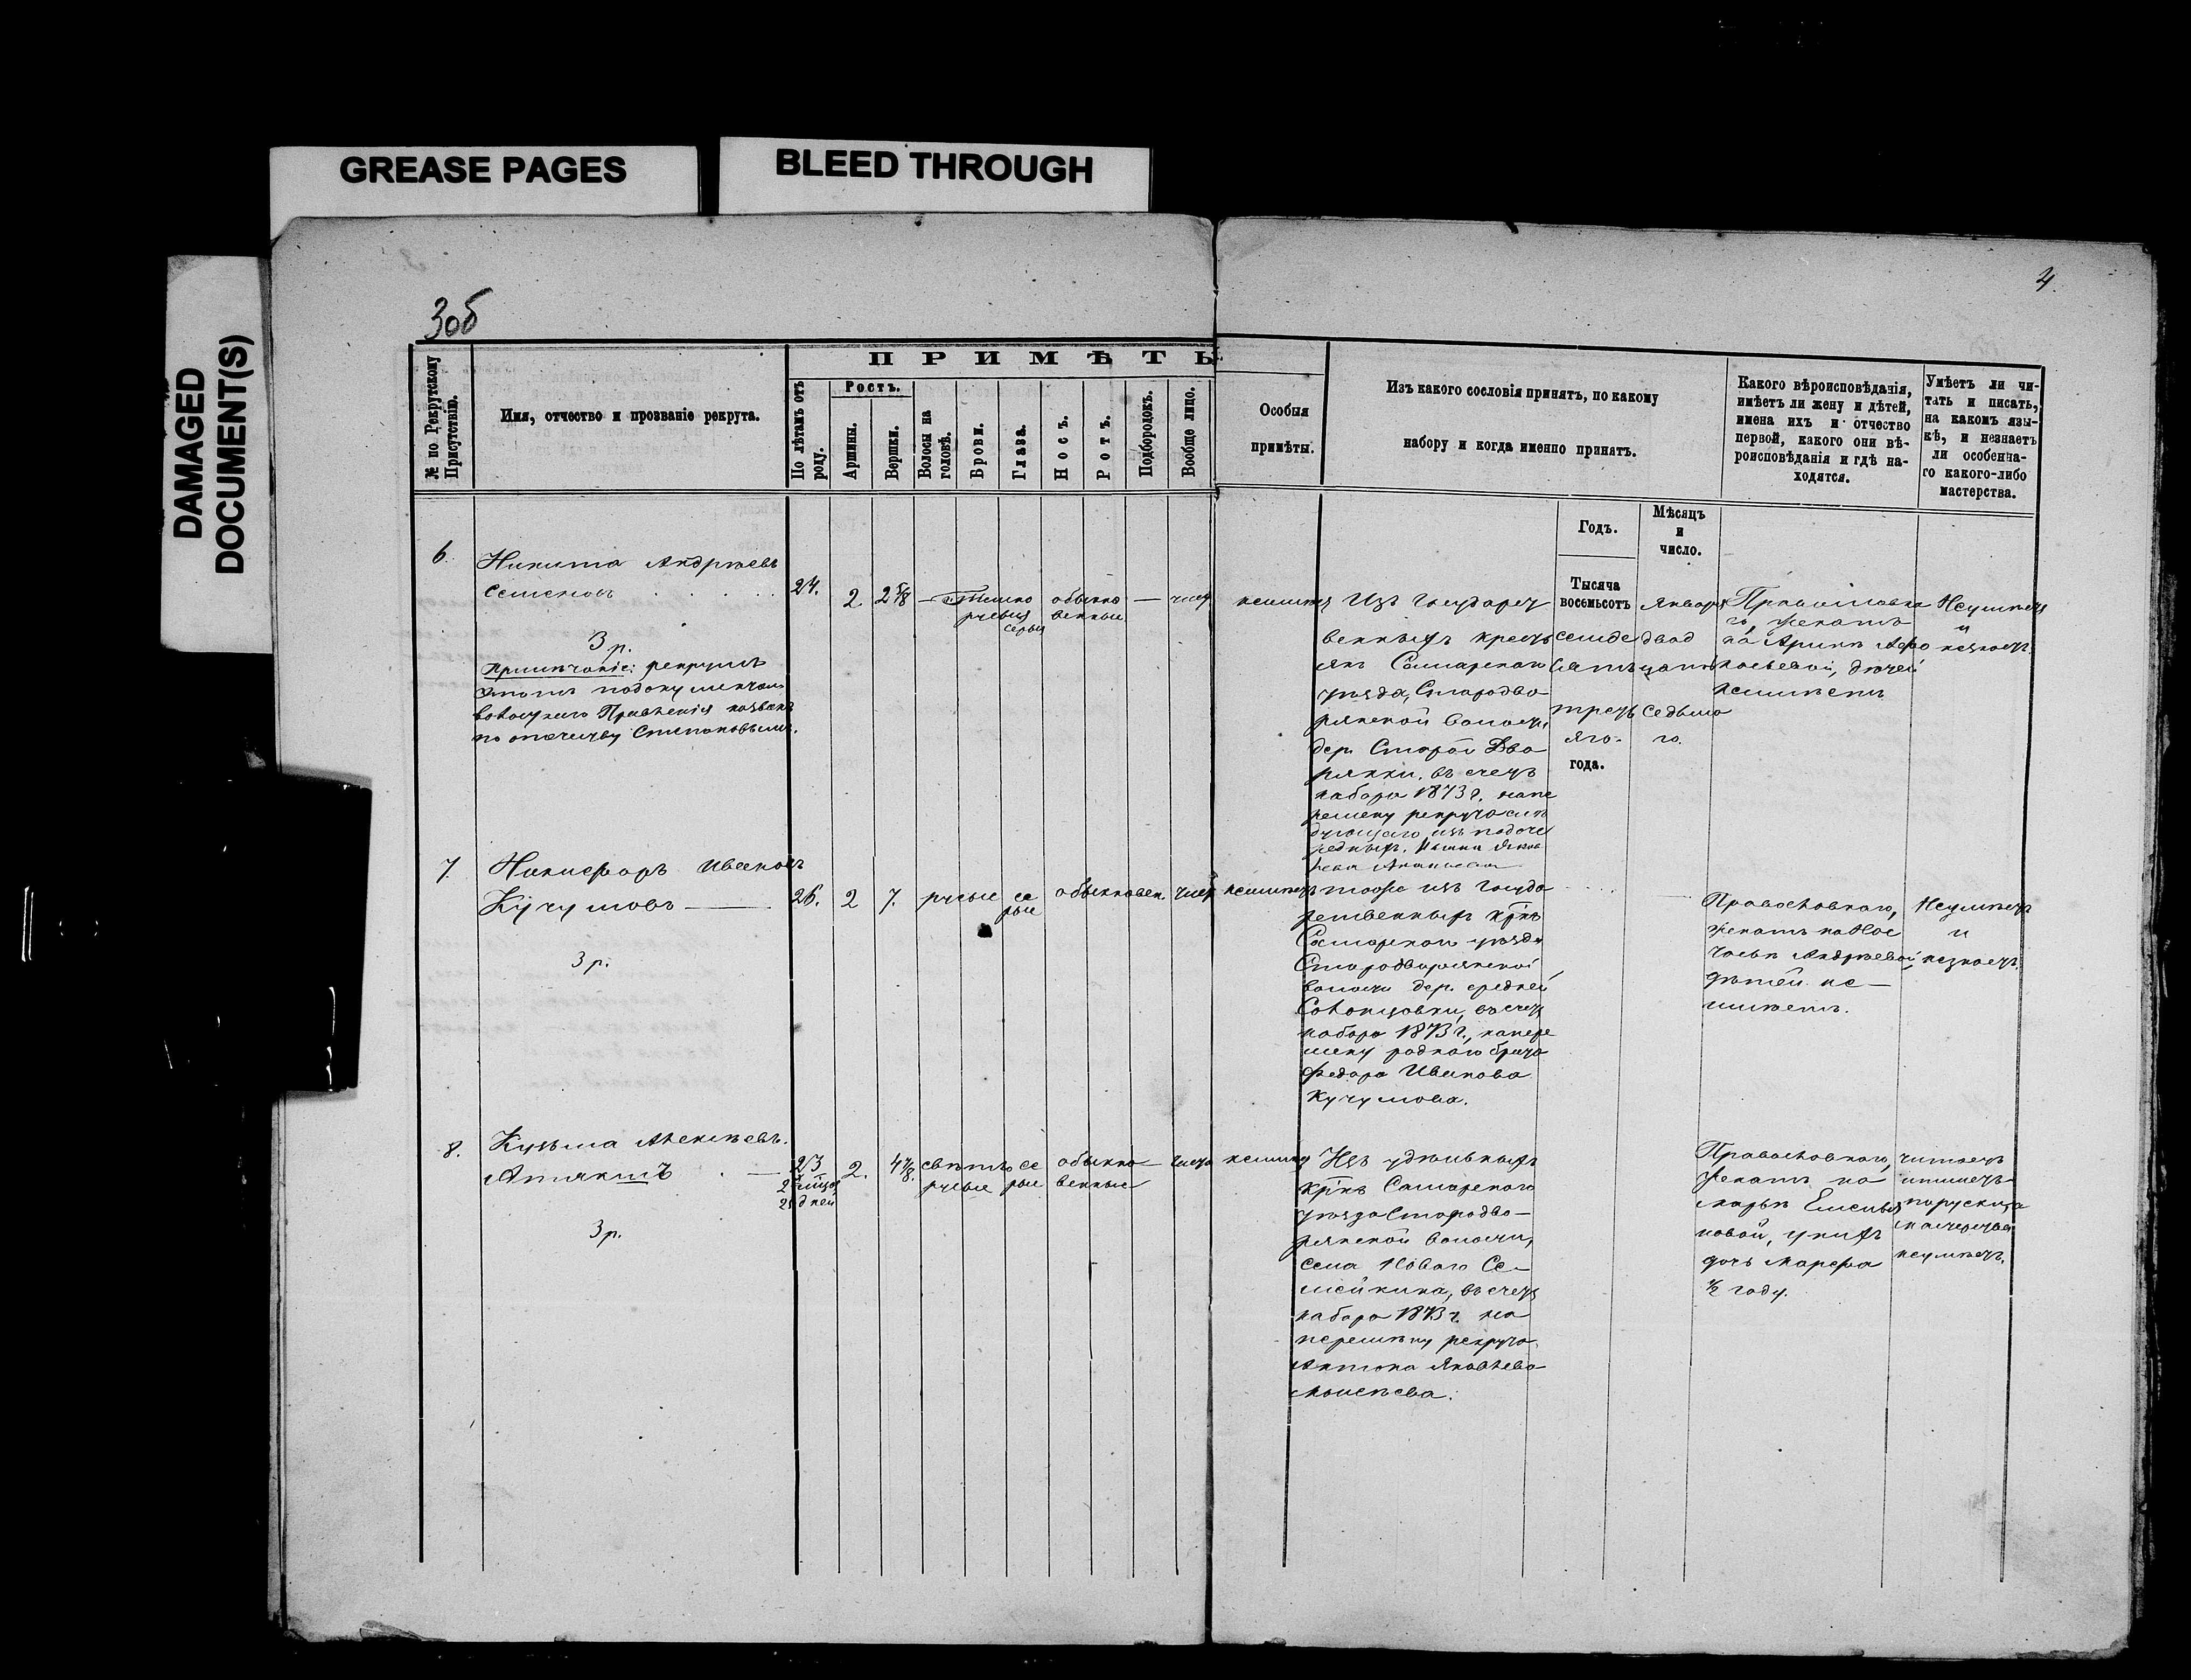 GREASE PAGES
BLEED THROUGH
DAMAGED
DOCUMENT(S)
3об
4.
№ по Рекрутскому
Присутствію.
Имя, отчество и прозваніе рекрута.
ПРИМѢТЫ
По лѣтамъ отъ
роду.
Ростъ.
Аршины.
Вершки.
Волосы на
головѣ.
Брови.
Глаза.
Носъ.
Ротъ.
Подбородокъ.
Вообще лицо.
Особыя
примѣты.
Изъ какого сословія принятъ, по какому
набору и когда именно принятъ.
Какого вѣроисповѣданія,
имѣетъ ли жену и дѣтей,
имена ихъ и отчество
первой, какого они вѣ-
роисповѣданія и гдѣ на-
ходятся.
Умѣетъ ли чи-
тать и писать,
на какомъ язы-
кѣ, и незнаетъ
ли особенна-
го какого-либо
мастерства.
Годъ.
Мѣсяцъ
и
число.
6.
Никита Андреевъ
Семеновъ
3 р.
Примѣчаніе: рекрутъ
этотъ по документамъ
волостнаго Правленія названъ
по отечеству Степановымъ.
24.
2.
2 5/8
темно
русыя
серыя
обыкно
венные
чист
неимѣетъ
Изъ Государст
венныхъ кресть
янъ Самарскаго
уѣзда, Стародво
рянской волости,
дер. Старой Дво
рянки, въ счетъ
набора 1873 г. напе
ремену рекрута слѣ
дующаго изъ подоче
редныхъ.
Тысяча
восемьсотъ
семьде
сятъ
треть
яго
года.
Января
двад
цать
седьмо
го.
Православна
го, женатъ
на Аринѣ
дѣтей
неимѣетъ
Неумѣетъ
и
незнаетъ.
7.
Никифоръ Ивановъ
Кучумовъ
3 р.
26.
2
7.
русые
се
рые
обыкновен.
чист
неимѣетъ
тоже изъ Госуда
рственныхъ кр-нъ
Самарскаго уѣзда
Стародворянской
волости дер. средней
Солонцовки, въ счетъ
набора 1873 г., напере
мену роднаго брата
Федора Иванова
Кучумова.
Православнаго,
женатъ на Нас
тасьѣ Андреевой,
дѣтей не
имѣетъ.
Неумѣетъ
и
незнаетъ.
8.
Кузьма Алексѣевъ
Атякшъ
3 р.
23
2 мѣсяц
25 дней
2.
4 7/8.
свѣтло
русые
се
рые
обыкно
венные
чисто
неимѣетъ
Изъ удѣльныхъ
кр-нъ Самарскаго
уѣзда Стародво
рянской волости,
села Новаго Се
мейкина, въ счетъ
набора 1873 г. на
перемѣну рекрута
Антона Яковлева
Моисѣева.
Православнаго,
женатъ на
Марьѣ
новой, у нихъ
дочь Марфа
1/2 году.
читаетъ
и пишетъ
порусски, а
мастерства
неумѣетъ.